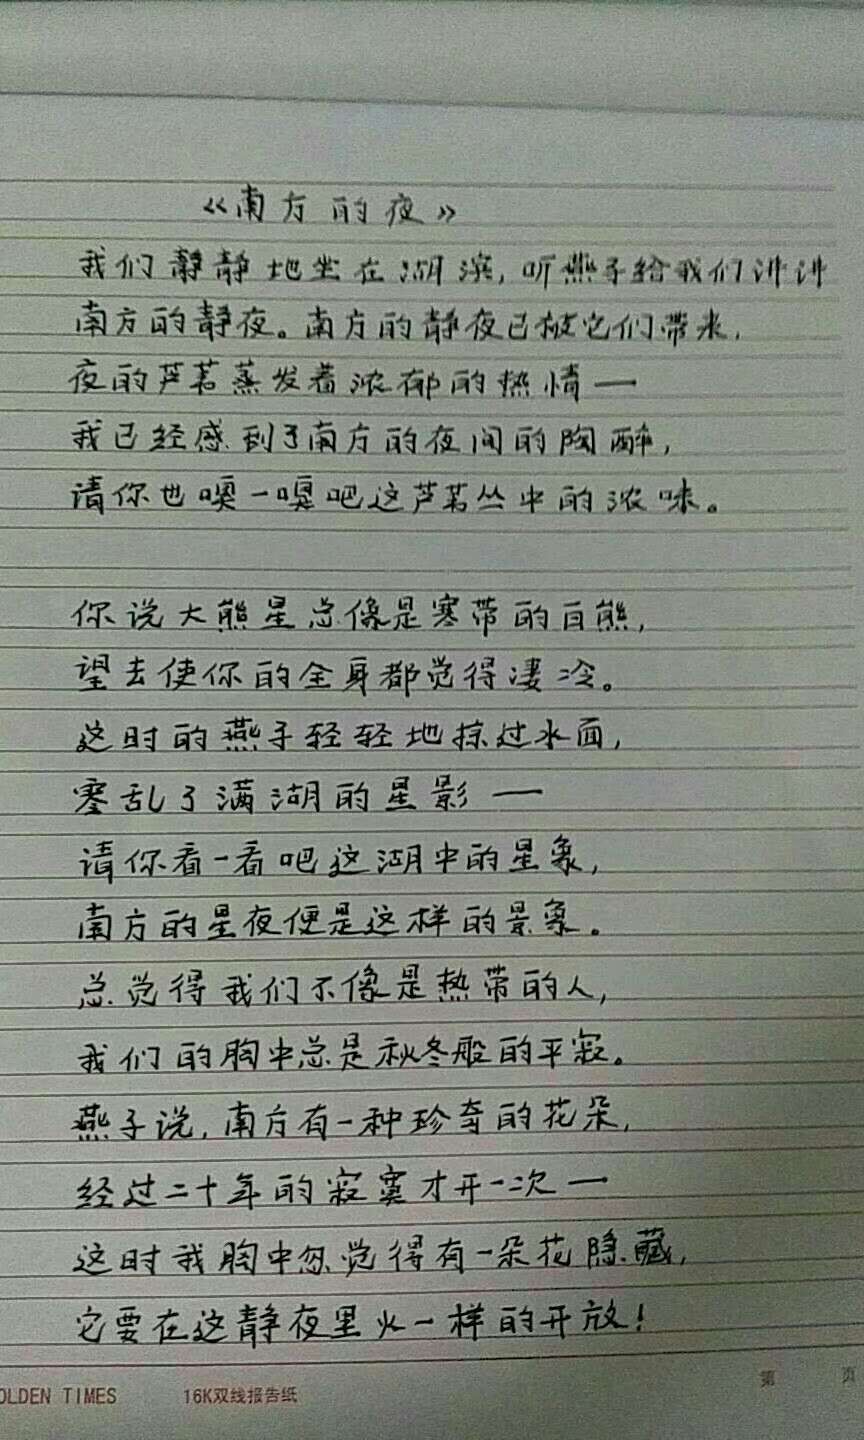 《南方的夜》
我们静静地坐在湖滨,听燕子给我们讲讲
南方的静夜。南方的静夜已被它们带来,
夜的芦苇蒸发着浓郁的热情—
我已经感到了南方的夜间的陶醉,
请你也嗅一嗅吧这芦苇丛中的浓味。
你说大熊星总像是寒带的白熊,
望去使你的全身都觉得凄冷。
这时的燕子轻轻地掠过水面,
零乱了满湖的星影—
请你看一看吧这湖中的星象,
南方的星夜便是这样的景象。
总觉得我们不像是热带的人,
我们的胸中总是秋冬般的平寂。
燕子说,南方有一种珍奇的花朵,
经过二十年的寂寞才开一次—
这时我胸中忽觉得有一朵花隐藏,
它要在这静夜里火一样的开放!
第 页
OLDEN TIMES 16K双线报告纸